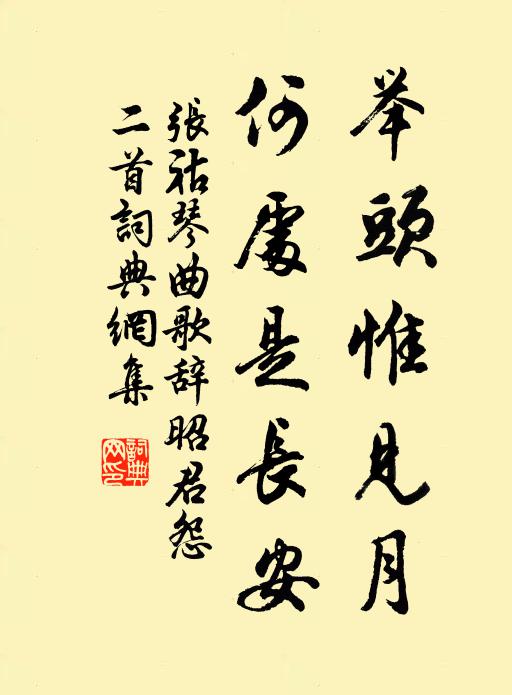 举頭惟見月
何處是長安
張祜琴曲歌辞昭君怨
二首詞典網集
詞典网印